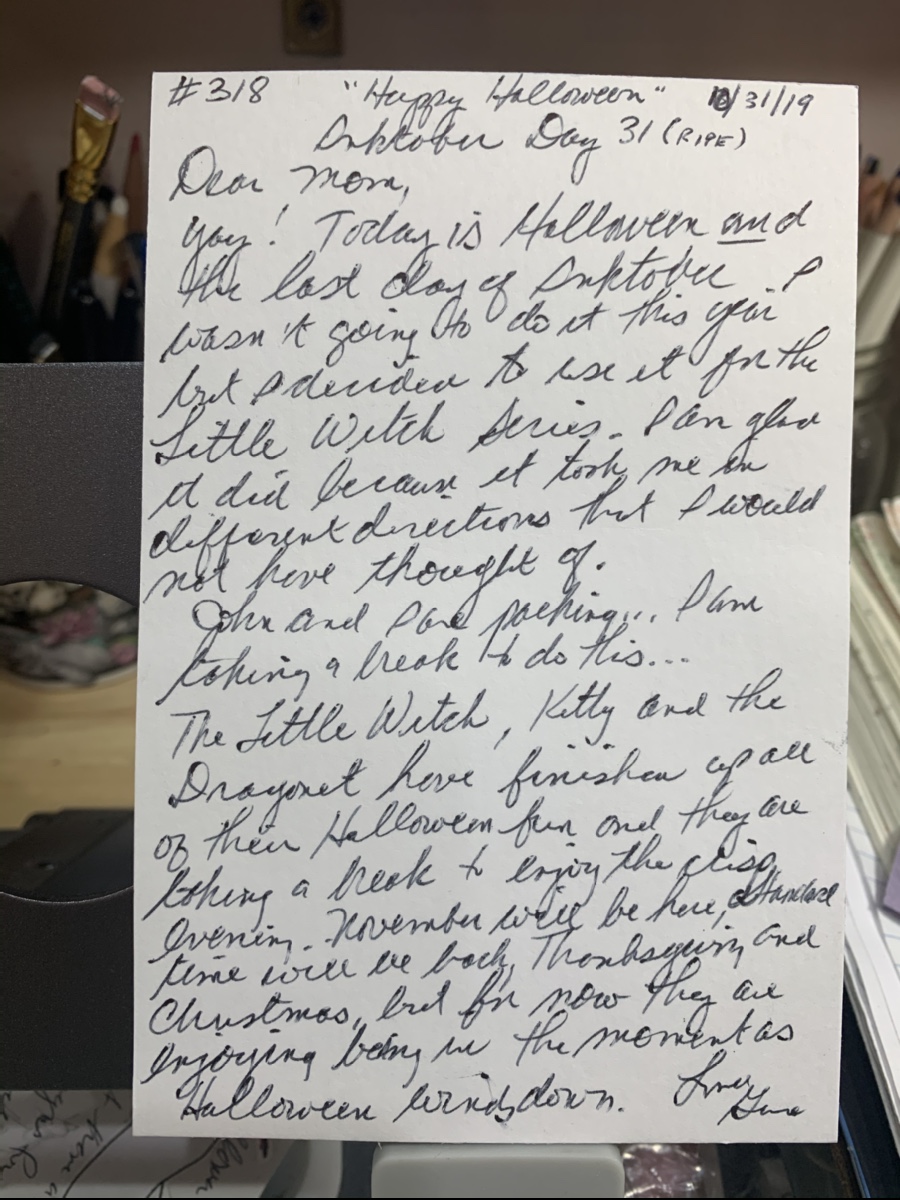 #318 "Happy Halloween" 10/31/19
Inktober Day 31 (RIPE)
Dear Mom,
Yay! Today is Halloween and
the last day of Inktober. I
wasn't going to do it this year
but I decided to use it for the
Little Witch Series. I am glad
I did because it took me in
different directions that I would
not have thought of.
John and I are packing... I am
taking a break to do this...
The Little Witch, Kitty and the
Dragonet have finished up all
of their Halloween fun and they are
taking a break to enjoy the crisp
evening. November will be here, standard
time will be back, Thanksgiving and
Christmas, but for now they are
enjoying being in the moment as
Halloween winds down. Love,